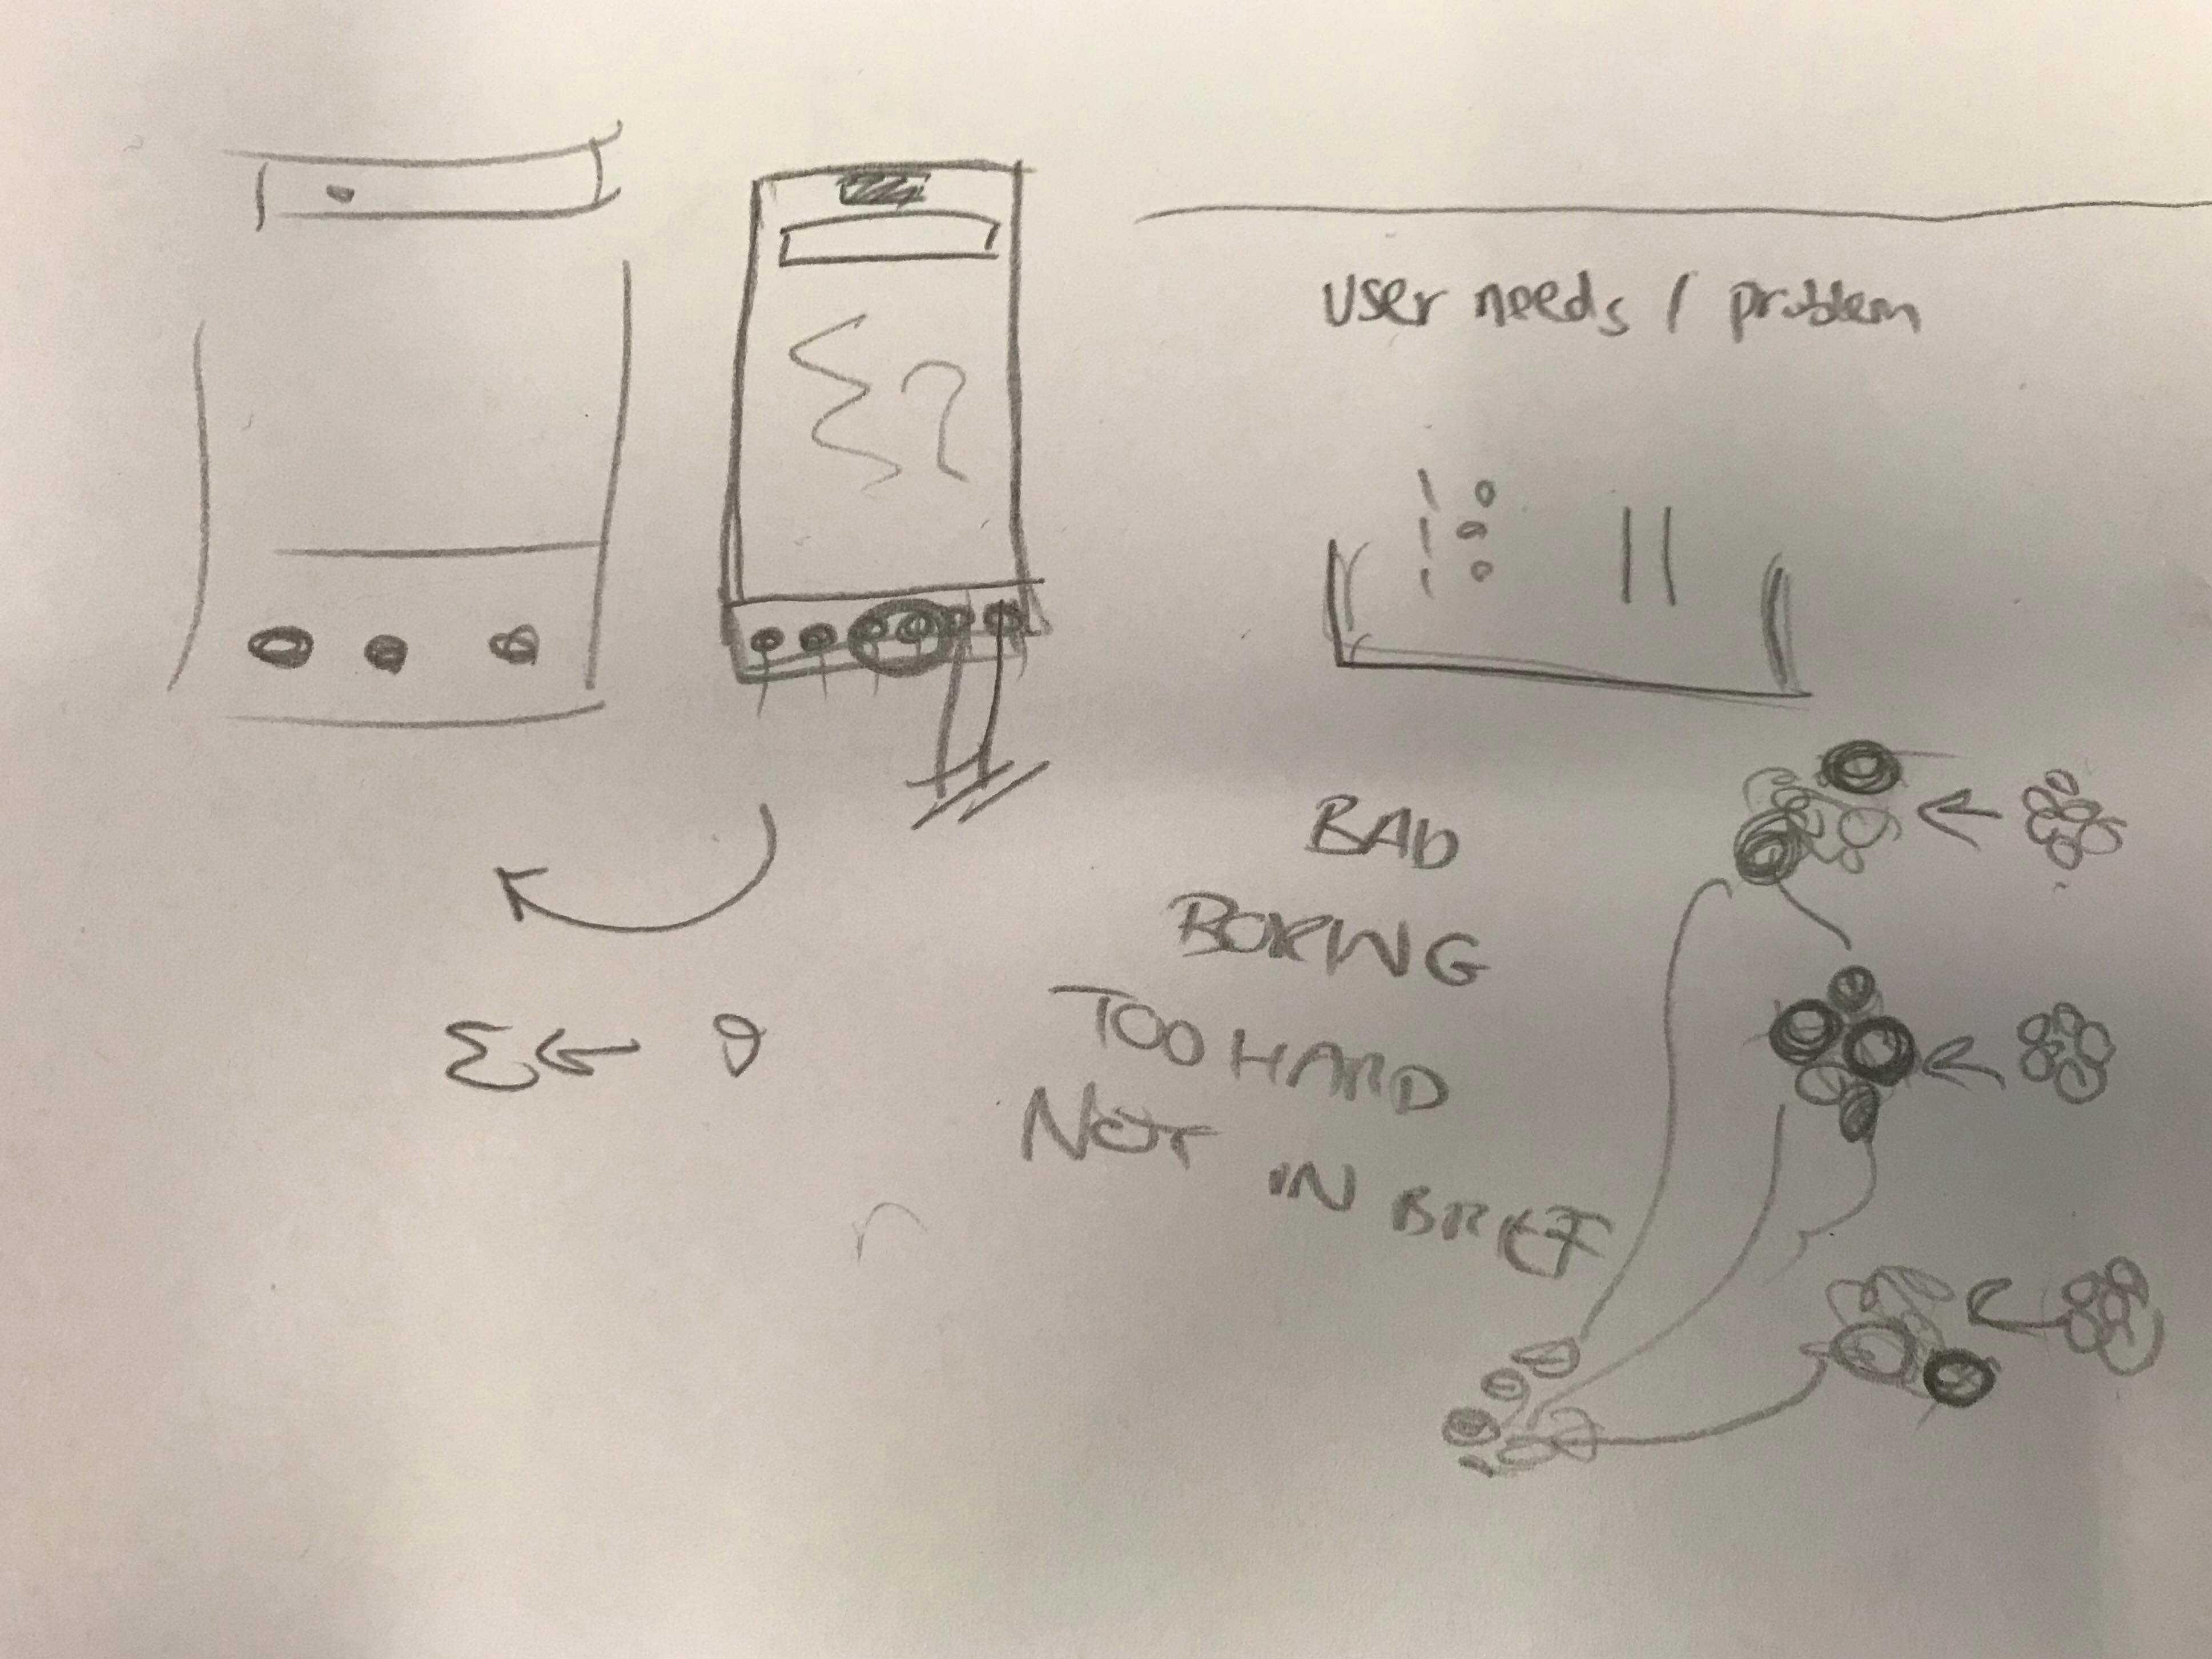 User needs / problem
Σ ?
BAD
BORING
TOO HARD
NOT IN BRIEF
Σ ←